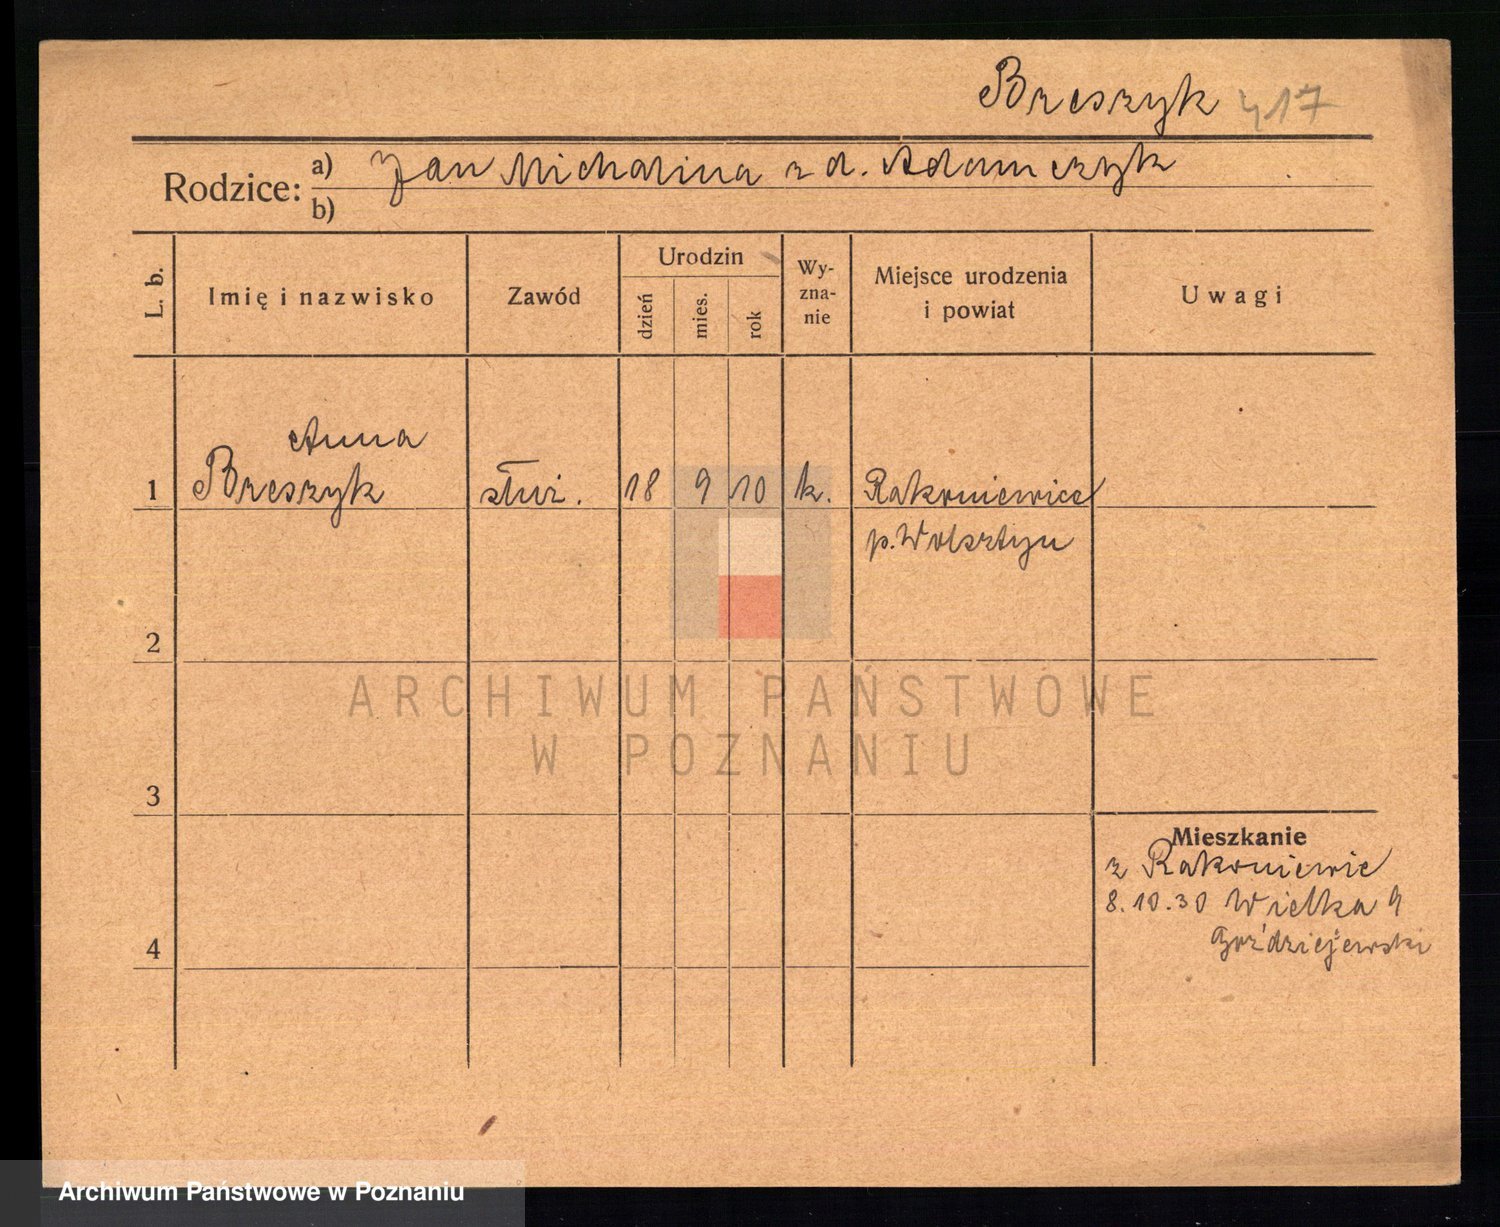 Breszyk 417
Rodzice: a) Jan Michalina z d. Adamczyk
b)
L. b.
Imię i nazwisko
Zawód
Urodzin
dzień
mies.
rok
Wy-
zna-
nie
Miejsce urodzenia
i powiat
Uwagi
Anna
1 Breszyk służ. 18 9 10 k. Rakoniewice
p. Wolsztyn
2
ARCHIWUM PAŃSTWOWE
W POZNANIU
3
Mieszkanie
z Rakoniewic
8.10.30 Wielka 9
4
Archiwum Państwowe w Poznaniu